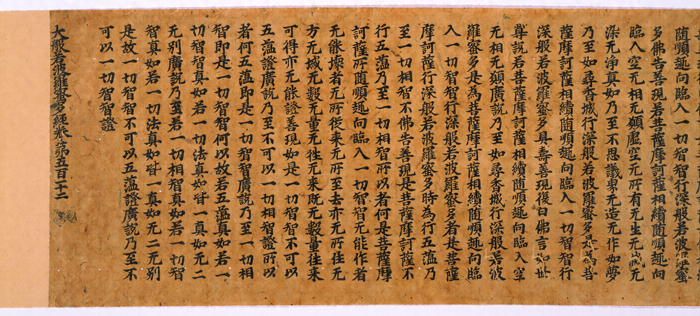 随順趣向臨入一切智智行深般若波羅蜜
多佛告善現若菩薩摩訶薩相續随順趣向
臨入空无相无願虚空无所有无生无滅无
深无浄真如乃至不思議界无造无作如夢
乃至如尋香城行深般若波羅蜜多是為菩
薩摩訶薩相續随順趣向臨入一切智智行
深般若波羅蜜多具壽善現復白佛言如世
尊說若菩薩摩訶薩相續随順趣向臨入空
无相无願廣說乃至如尋香城行深般若波
羅蜜多是為菩薩摩訶薩相續随順趣向臨
入一切智智行深般若波羅蜜多者是菩薩
摩訶薩行深般若波羅蜜多時為行五蘊乃
至一切相智不佛告善現是菩薩摩訶薩不
行五蘊乃至一切相智所以者何是菩薩摩
訶薩所随順趣向臨入一切智智无能作者
无能壞者无所從來无所至去亦无所住无
方无域无數无量无往无來既无數量往來
可得亦无能證善現如是一切智智不可以
五蘊證廣說乃至不可以一切相智證所以
者何五蘊即是一切智智廣說乃至一切相
智即是一切智智何以故若五蘊真如若一
切智智真如若一切法真如皆一真如无二
无別廣說乃至若一切相智真如若一切智
智真如若一切法真如皆一真如无二无別
是故一切智智不可以五蘊證廣說乃至不
可以一切智智證
大般若波羅蜜多經卷第五百二十二